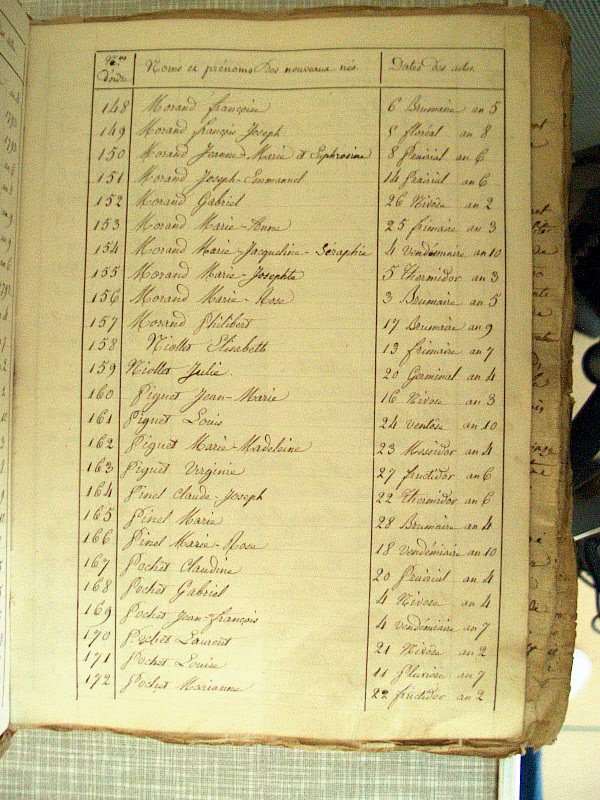 Nos d'ordre Noms et prénoms des nouveaux nés Dates des actes
148 Morand françoise 6 Brumaire an 5
149 Morand françois Joseph 5 floréal an 8
150 Morand Jeanne-Marie et Euphrosine 8 Prairial an 6
151 Morand Joseph-Emmanuel 14 Prairial an 6
152 Morand Gabriel 26 Nivôse an 2
153 Morand Marie-Anne 25 frimaire an 3
154 Morand Marie-Jacqueline-Seraphie 4 Vendémiaire an 10
155 Morand Marie-Josephte 5 Thermidor an 3
156 Morand Marie-Rose 3 Brumaire an 5
157 Morand Philibert 17 Brumaire an 9
158 Niollet Elisabeth 13 frimaire an 7
159 Niollet Julie 20 Germinal an 4
160 Piguet Jean-Marie 16 Nivose an 3
161 Piguet Louis 24 Ventôse an 10
162 Piguet Marie-Madeleine 23 Messidor an 4
163 Piguet Virginie 27 fructidor an 6
164 Pinel Claude-Joseph 22 Thermidor an 6
165 Pinel Marie 28 Brumaire an 4
166 Pinel Marie-Rose 18 Vendémiaire an 10
167 Pochet Claudine 20 Prairial an 4
168 Pochet Gabriel 4 Nivose an 4
169 Pochet Jean-françois 4 Vendémiaire an 7
170 Pochet Laurent 21 Nivôse an 2
171 Pochet Louise 11 Pluviose an 7
172 Pochet Marianne 22 fructidor an 2